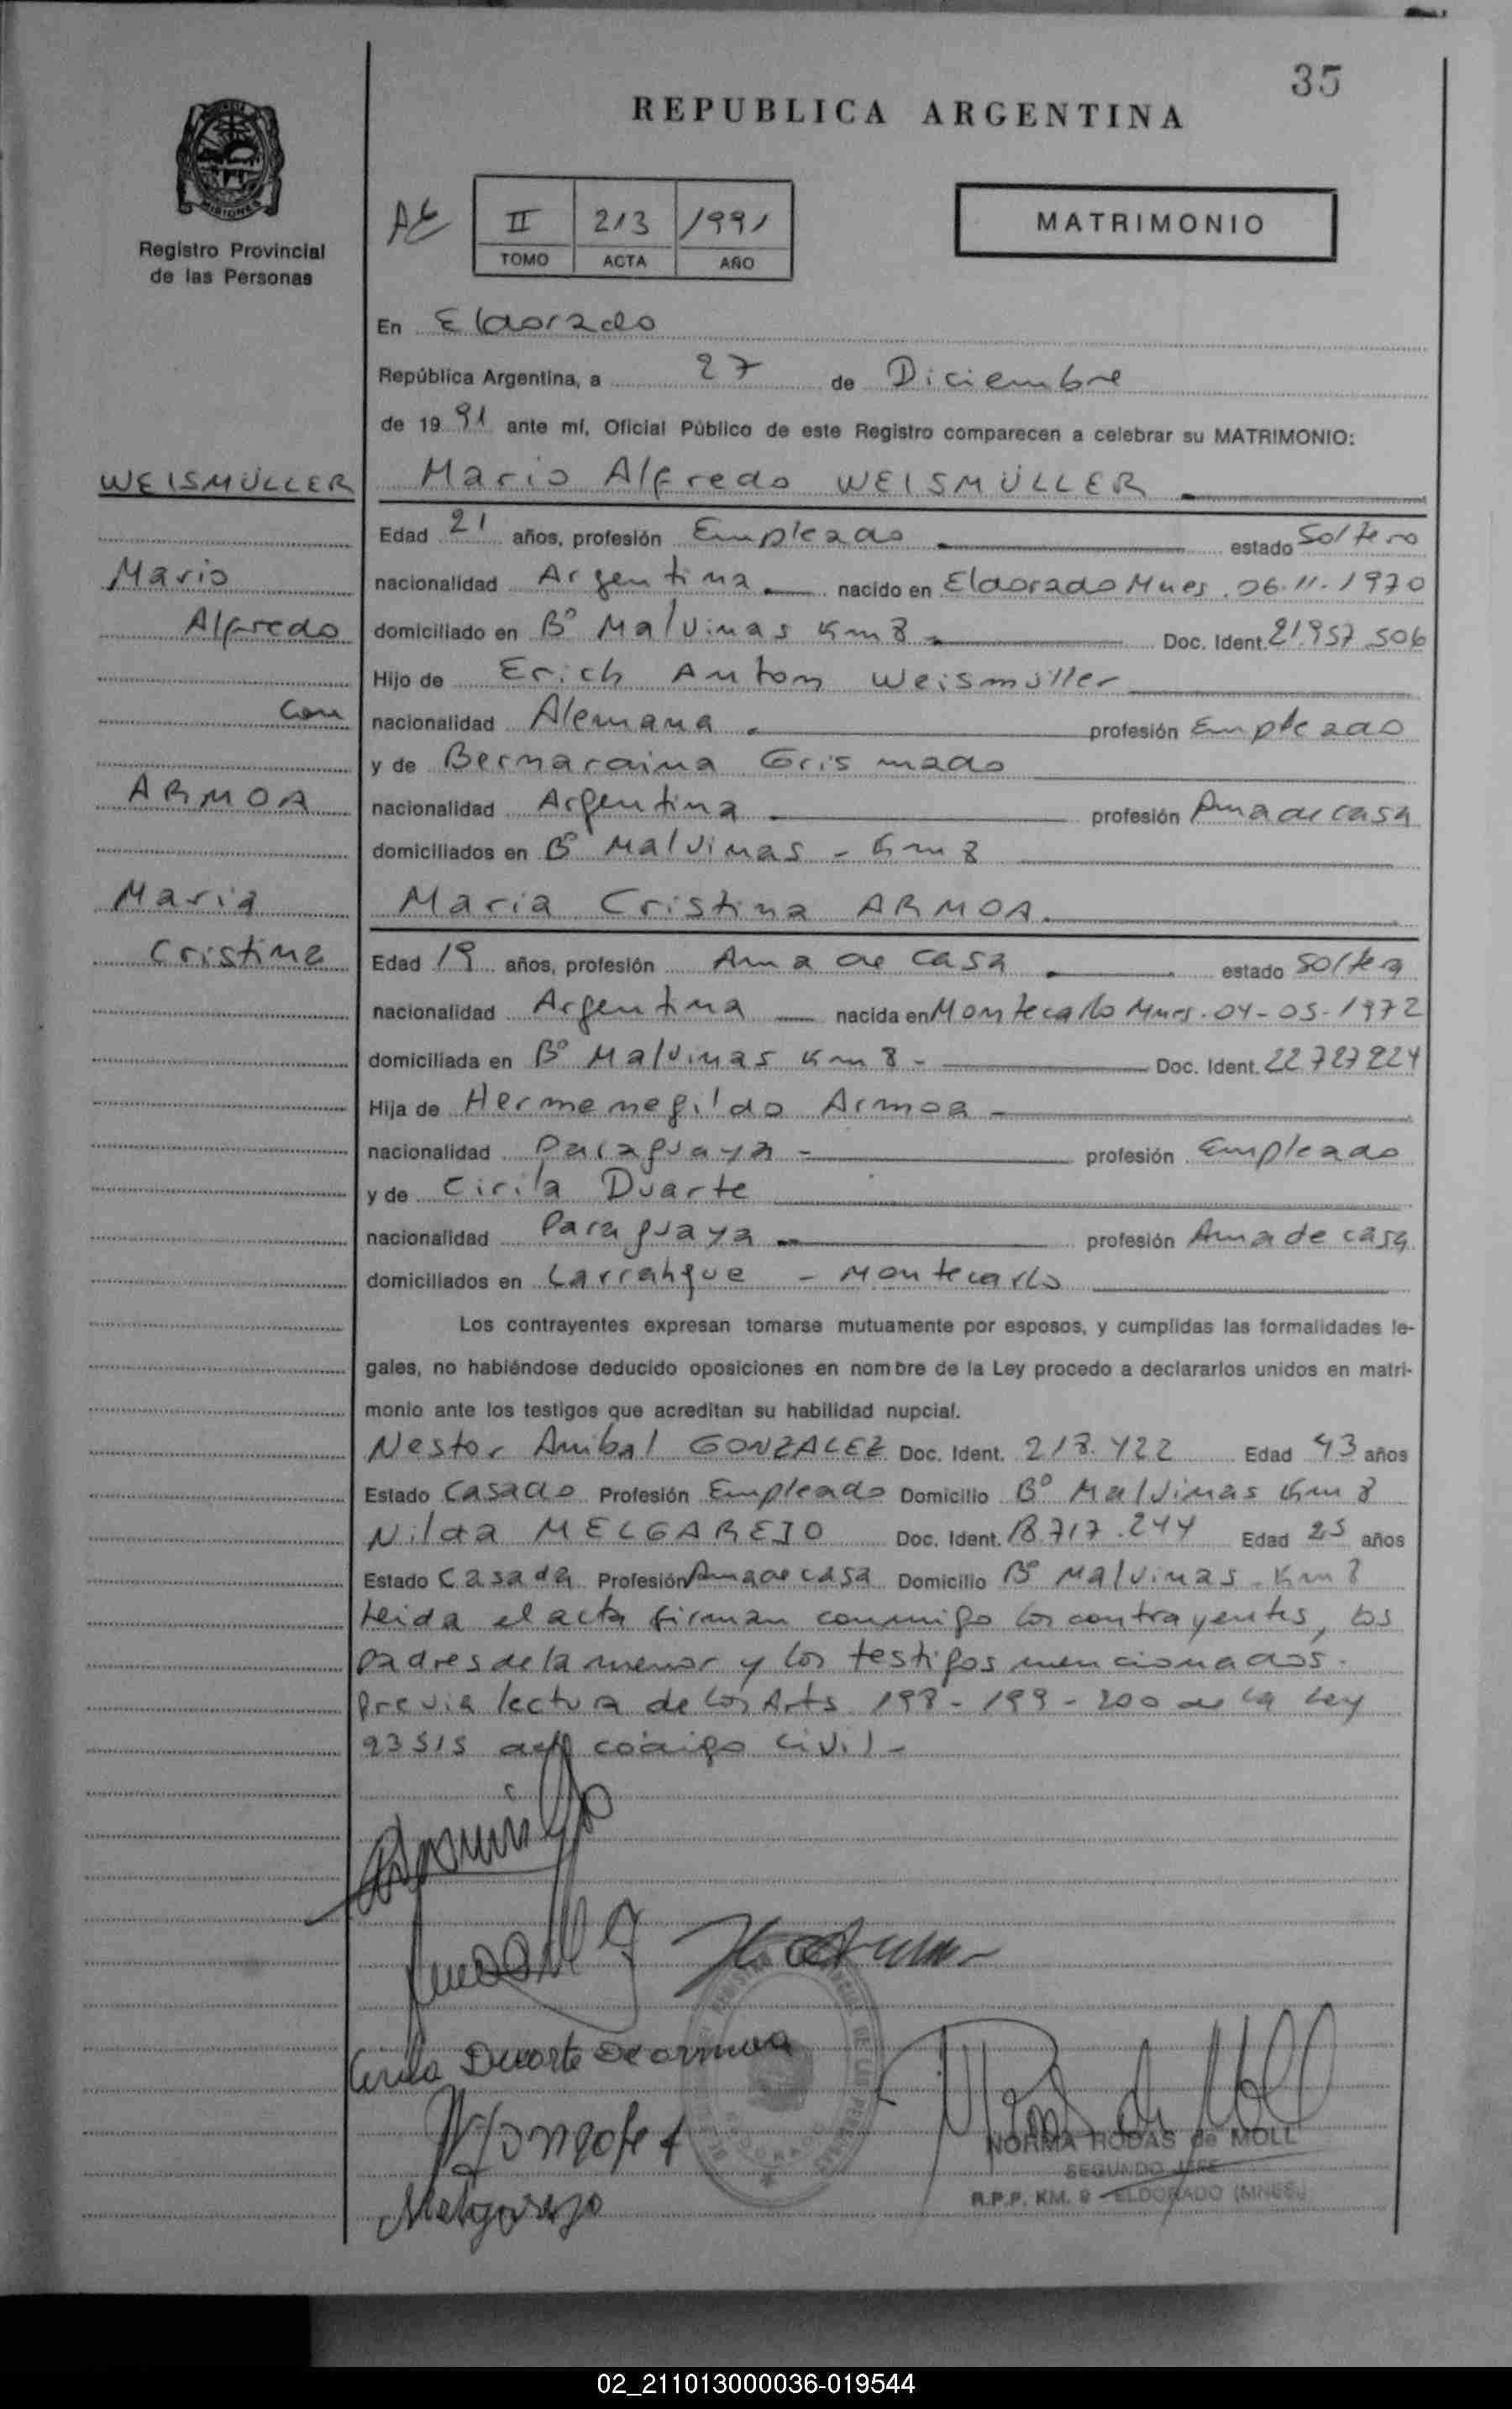 35
REPUBLICA ARGENTINA
MISIONES
Registro Provincial
de las Personas
II 213 1991
TOMO ACTA AÑO
MATRIMONIO
En Eldorado
República Argentina, a 27 de Diciembre
de 19 91 ante mí, Oficial Público de este Registro comparecen a celebrar su MATRIMONIO:
WEISMÜLLER
Mario Alfredo WEISMÜLLER
Edad 21 años, profesión Empleado estado Soltero
Mario
nacionalidad Argentina nacido en Eldorado Mnes. 06-11-1970
Alfredo
domiciliado en Bº Malvinas Km 8 Doc. Ident. 21.957.506
Hijo de Erich Anton Weismüller
con
nacionalidad Alemana profesión Empleado
y de Bernardina Grismado
ARMOA
nacionalidad Argentina profesión Ama de casa
domiciliados en Bº Malvinas - Km 8
Maria
Maria Cristina ARMOA.
Cristina
Edad 19 años, profesión Ama de casa estado Soltera
nacionalidad Argentina nacida en Montecarlo Mnes. 04-05-1972
domiciliada en Bº Malvinas Km 8 - Doc. Ident. 22.727.224
Hija de Hermenegildo Armoa -
nacionalidad Paraguaya - profesión Empleado
y de Cirila Duarte
nacionalidad Paraguaya profesión Ama de casa
domiciliados en Larrahgue - Montecarlo
Los contrayentes expresan tomarse mutuamente por esposos, y cumplidas las formalidades le-
gales, no habiéndose deducido oposiciones en nombre de la Ley procedo a declararlos unidos en matri-
monio ante los testigos que acreditan su habilidad nupcial.
Nestor Anibal GONZALEZ Doc. Ident. 218.422 Edad 43 años
Estado Casado Profesión Empleado Domicilio Bº Malvinas Km 8
Nilda MELGAREJO Doc. Ident. 18.717.244 Edad 25 años
Estado Casada Profesión Ama de casa Domicilio Bº Malvinas - Km 8
Leida el acta firman conmigo los contrayentes, los
padres de la menor y los testigos mencionados.
Previa lectura de los Arts 198-199-200 de la Ley
23515 del código civil -
Cirila Duarte De armoa
Melgarejo
NORMA RODAS de MOLL
SEGUNDO JEFE
R.P.P. KM. 9 - ELDORADO (MNES.)
02_211013000036-019544